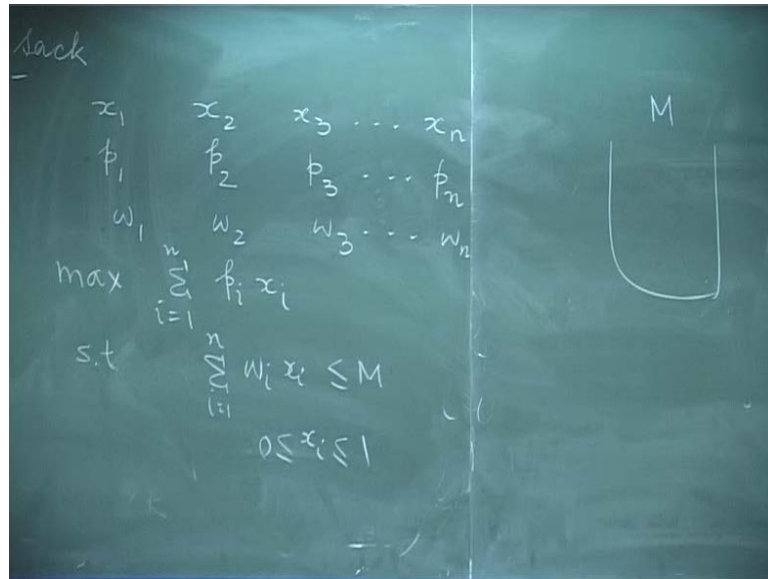 sack
x₁ x₂ x₃ ... xₙ
p₁ p₂ p₃ ... pₙ
w₁ w₂ w₃ ... wₙ
max ∑ᵢ₌₁ⁿ pᵢ xᵢ
s.t ∑ᵢ₌₁ⁿ wᵢ xᵢ ≤ M
0 ≤ xᵢ ≤ 1
M